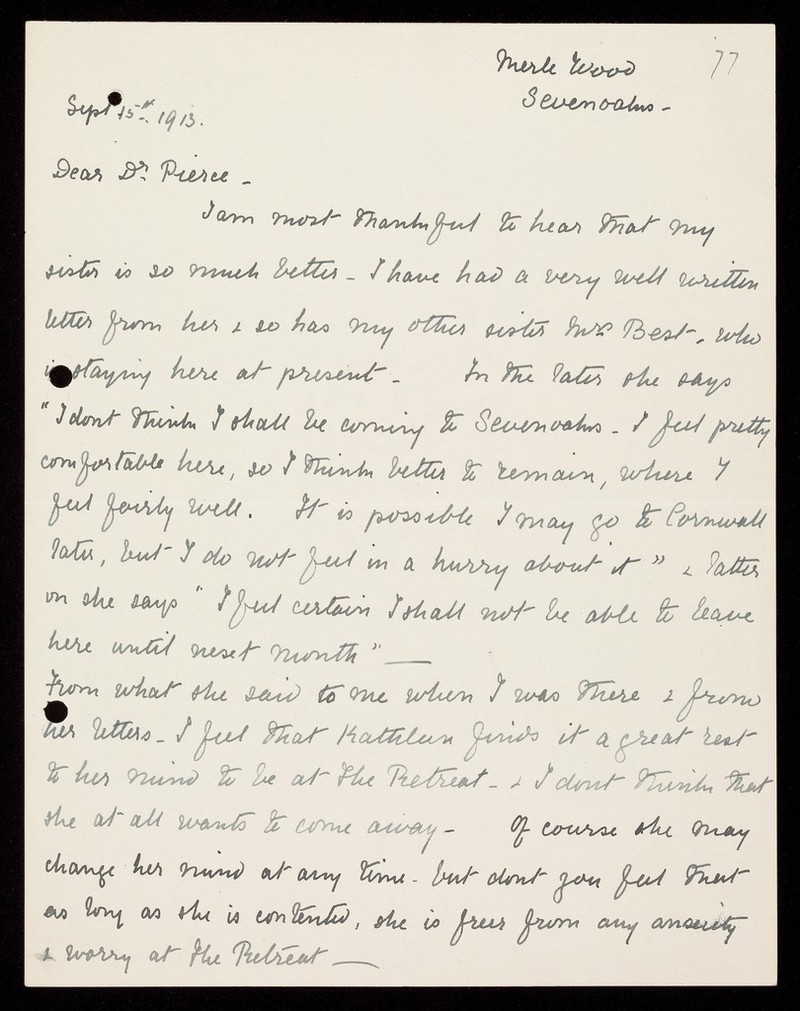 77
Merle Wood
Sevenoaks -
Sept 15th. 1913.
Dear Dr. Pierce -
I am most thankful to hear that my
sister is so much better - I have had a very well written
letter from her & so has my other sister Mrs Best - who
is staying here at present - In the later she says
"I dont think I shall be coming to Sevenoaks - I feel pretty
comfortable here, so I think better to remain, where I
feel fairly well. It is possible I may go to Cornwall
later, but I do not feel in a hurry about it" & latter
on she says "I feel certain I shall not be able to leave
here until next month" —
From what she said to me when I was there & from
her letters - I feel that Kathleen finds it a great rest
to her mind to be at The Retreat - & I dont think that
she at all wants to come away - Of course she may
change her mind at any time - but dont you feel that
as long as she is contented, she is freer from any anxiety
& worry at The Retreat —